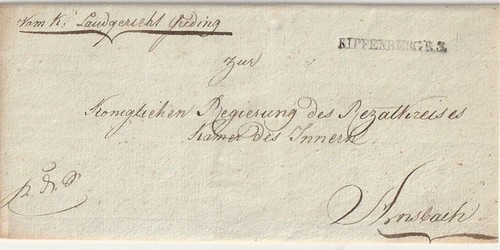 Vom K. Landgericht Greding
KIPFENBERG R.3.
zur
Königlichen Regierung des Rezatkreises
Kamer des Innern
Ansbach